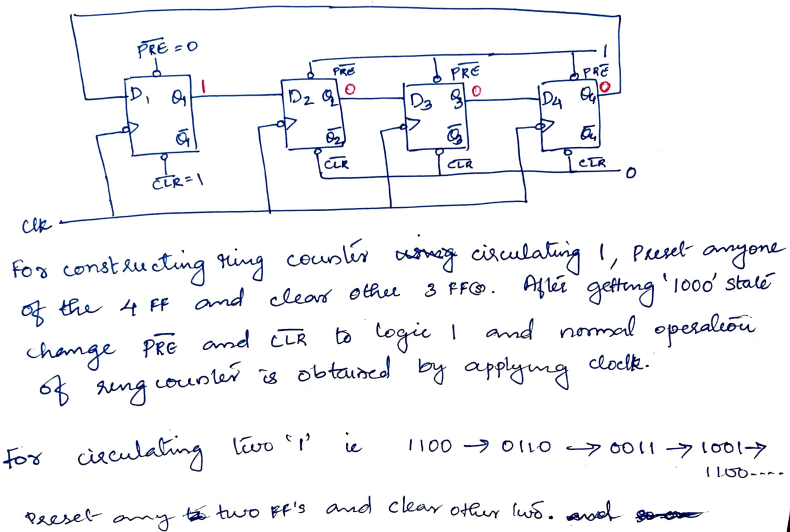 PRE = 0
1
PRE
PRE
PRE
D1 Q1
1
D2 Q2
0
D3 Q3
0
D4 Q4
0
Q̅1
Q̅2
Q̅3
Q̅4
CLR = 1
CLR
CLR
CLR
0
Clk
For constructing ring counter using circulating 1, Preset anyone
of the 4 FF and clear other 3 FFs. After getting '1000' state
change P̅R̅E̅ and C̅L̅R̅ to logic 1 and normal operation
of ring counter is obtained by applying clock.
For circulating two '1' ie 1100 → 0110 → 0011 → 1001 →
1100----
Preset any two FF's and clear other two.